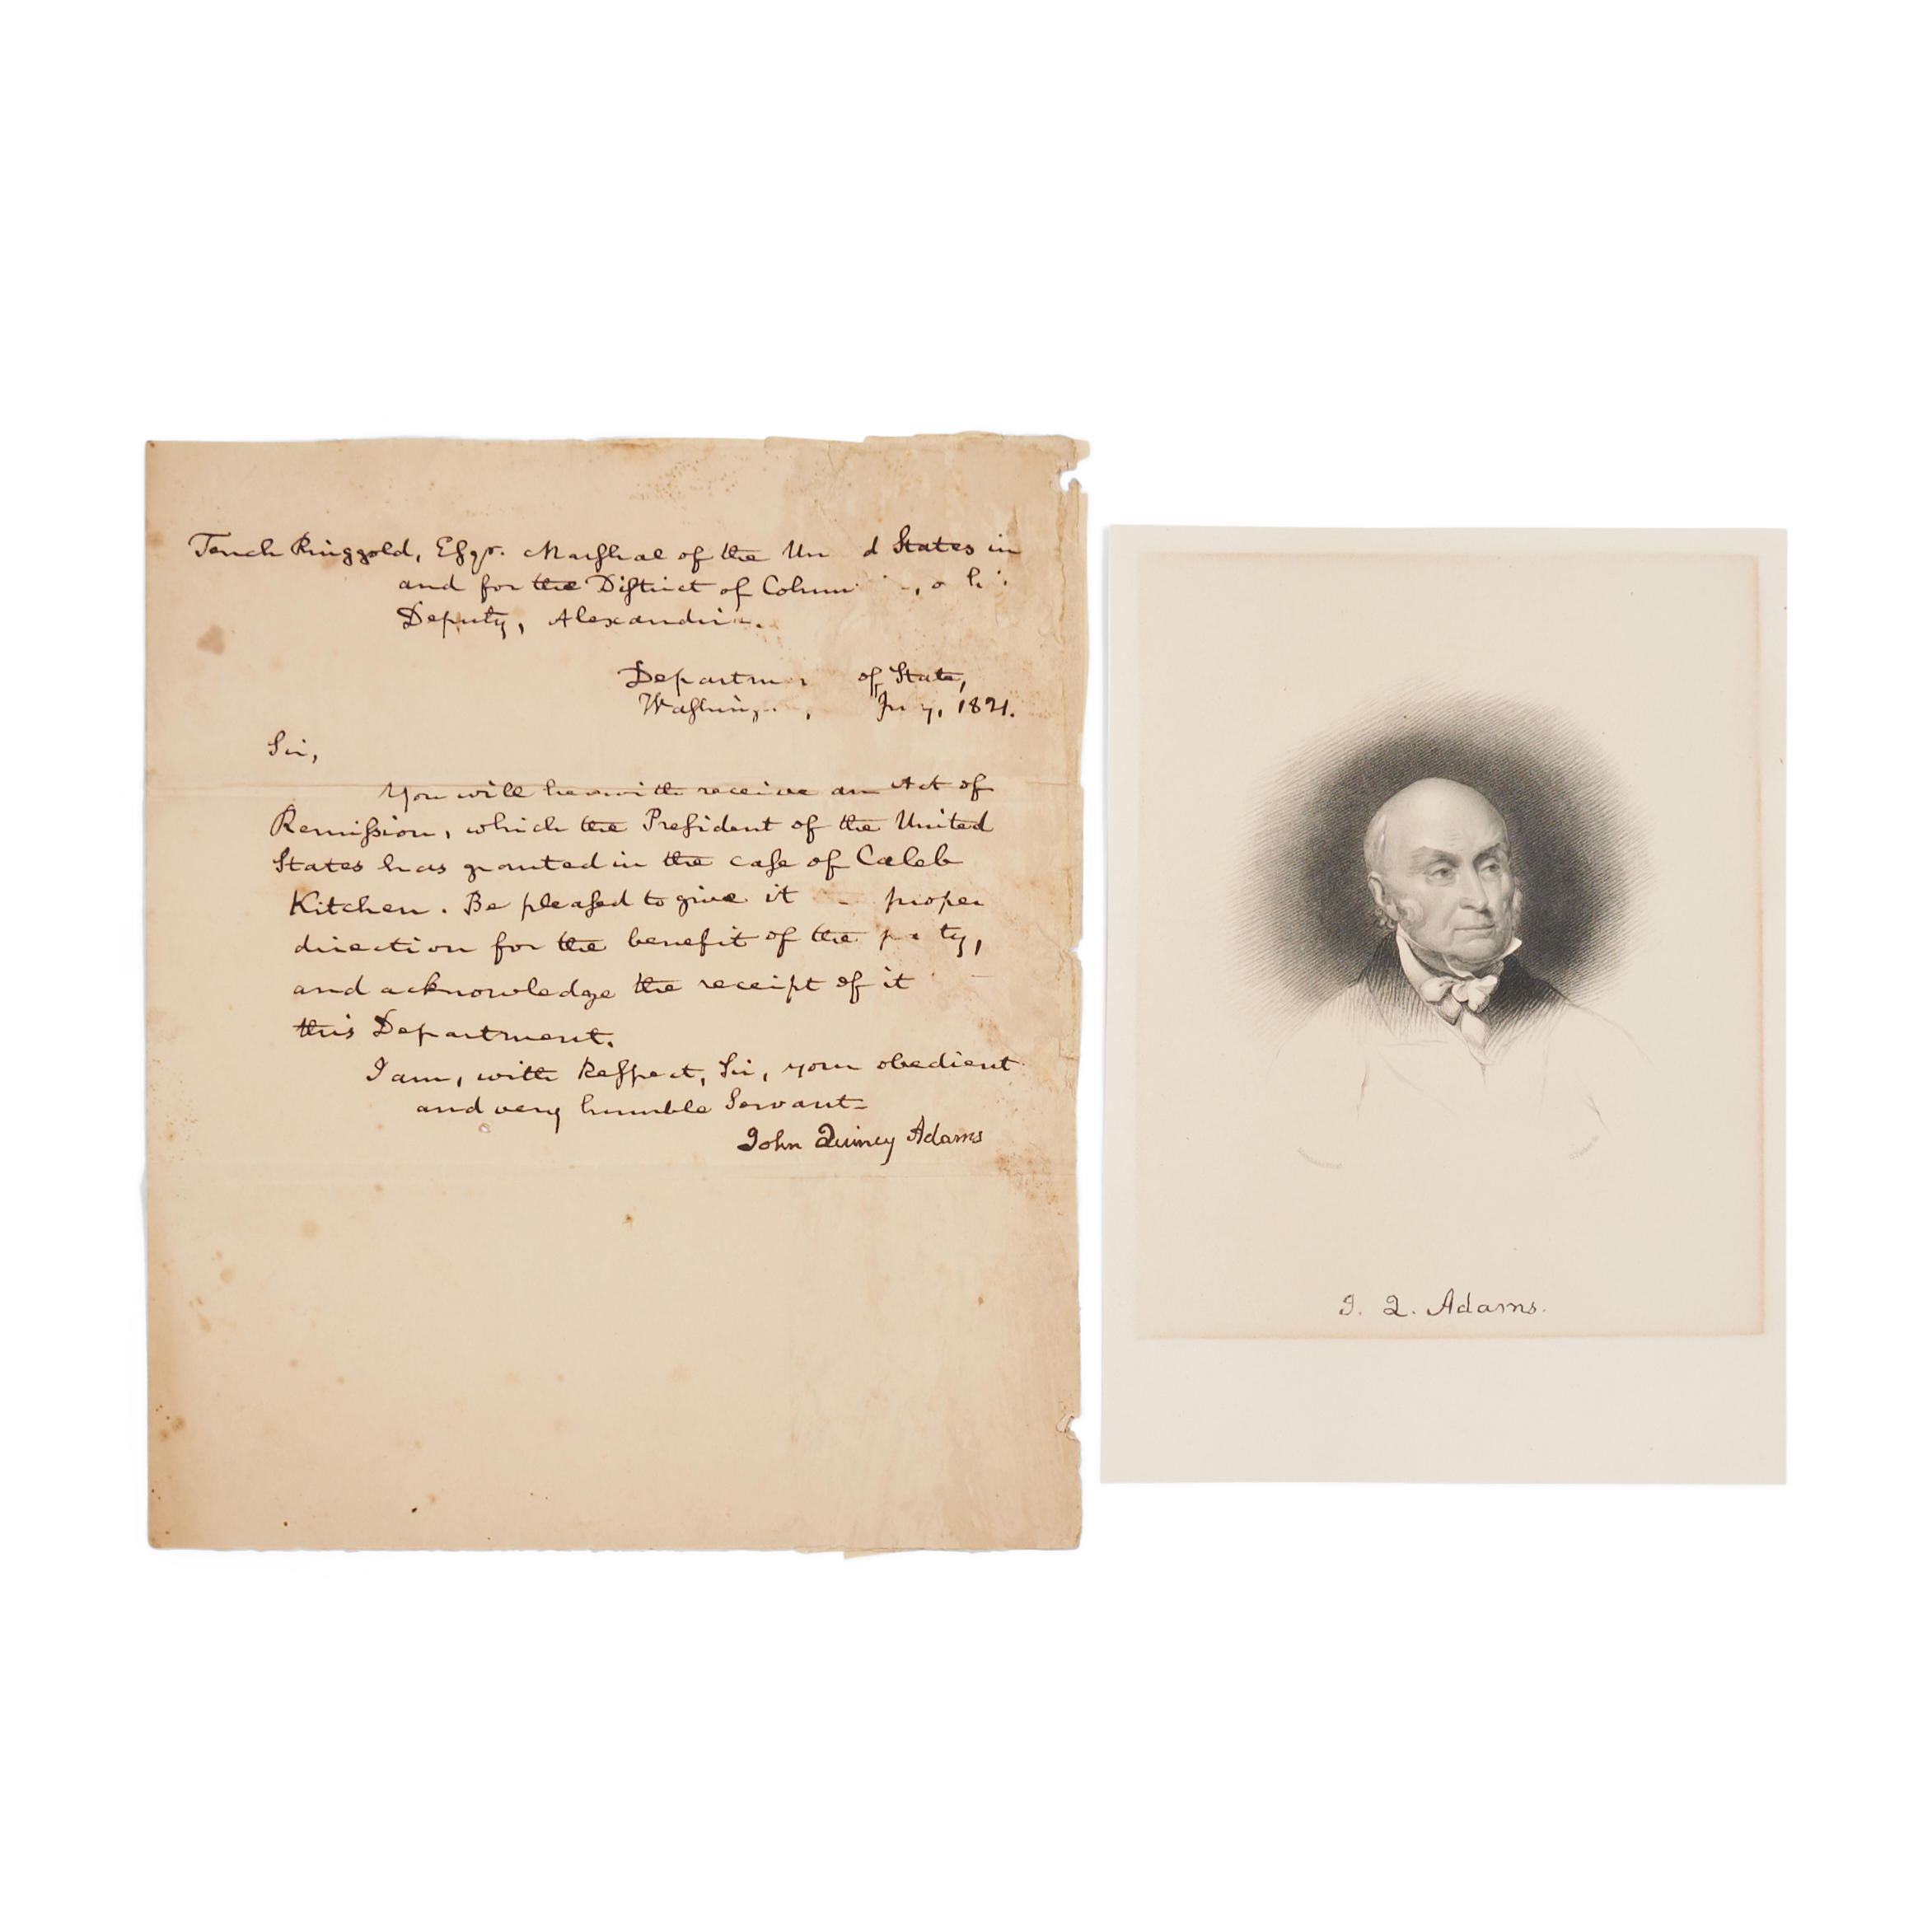 Tench Ringgold, Esqr. Marshal of the Un d States in
and for the District of Colum
Deputy, Alexandri
Departm of State,
Washing , 1821.
Sir,
You will herewith receive an Act of
Remission, which the President of the United
States has granted in the case of Caleb
Kitchen. Be pleased to give it proper
direction for the benefit of the pa ty,
and acknowledge the receipt of it
this Department.
I am, with Respect, Sir, your obedient
and very humble Servant
John Quincy Adams
J. Q. Adams.